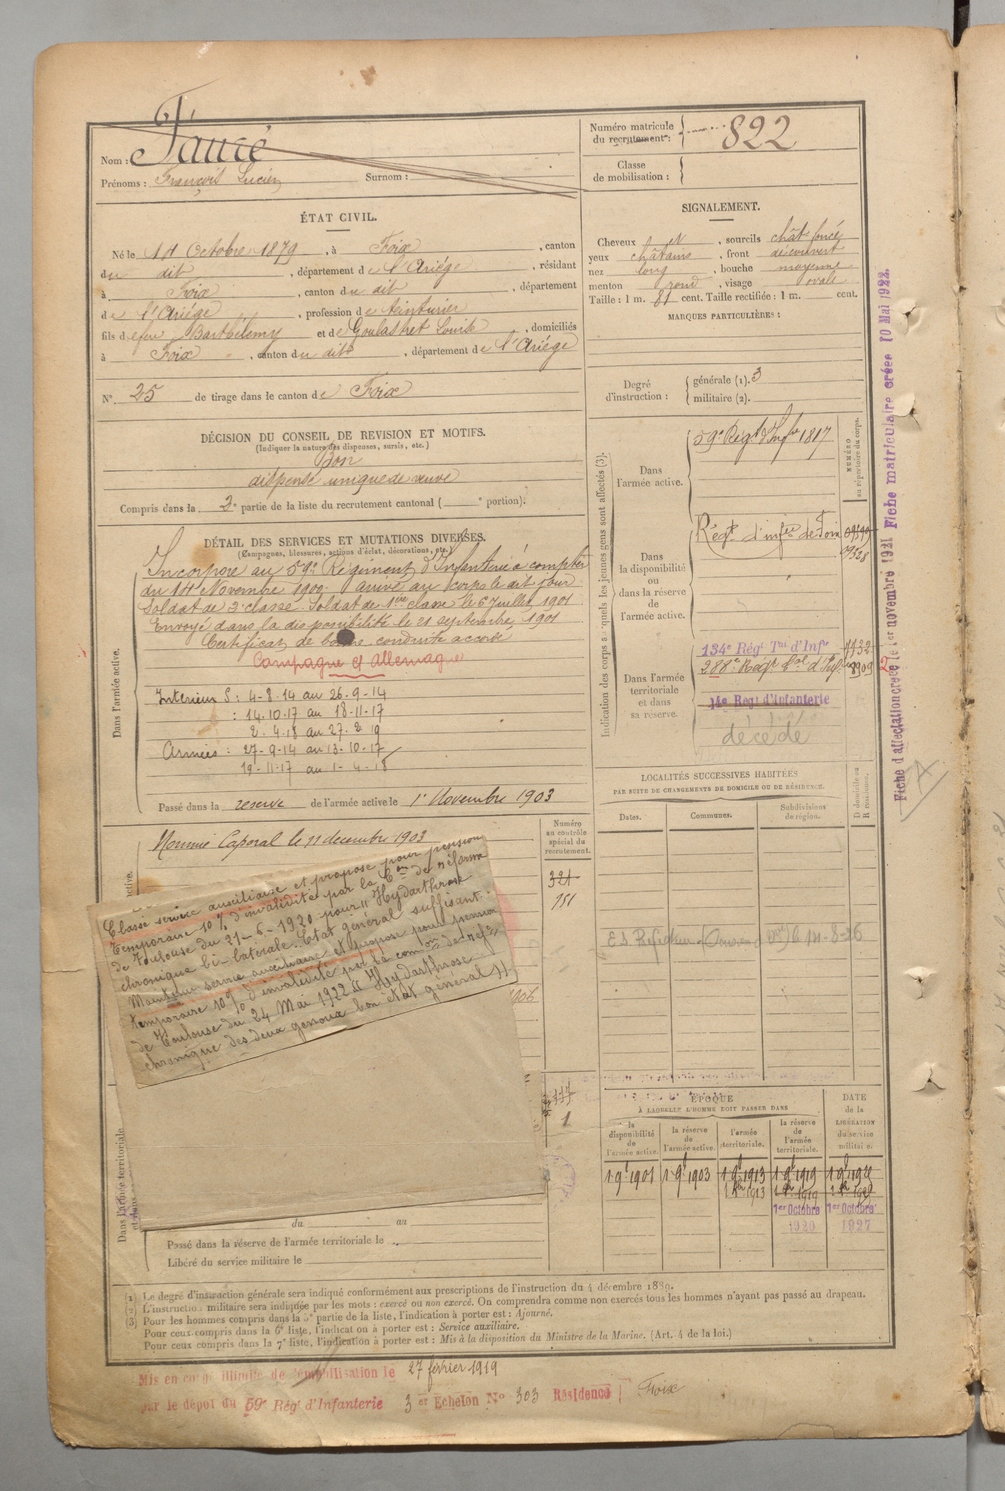 Nom : Fauré
Prénoms : François Lucien Surnom :
Numéro matricule
du recrutement : 822
Classe
de mobilisation :
ÉTAT CIVIL.
Né le 14 Octobre 1879, à Foix, canton
du dit, département de l'Ariége, résidant
à Foix, canton du dit, département
de l'Ariége, profession de teinturier
fils de feu Barthélemy et de Goulastret Louise, domiciliés
à Foix, canton du dit, département de l'Ariége
N° 25 de tirage dans le canton de Foix
SIGNALEMENT.
Cheveux , sourcils chât foncé
yeux châtains, front découvert
nez long, bouche moyenne
menton rond, visage ovale
Taille : 1 m. 81 cent. Taille rectifiée : 1 m. cent.
MARQUES PARTICULIÈRES :
Degré
d'instruction : générale (1). 3
militaire (2).
DÉCISION DU CONSEIL DE REVISION ET MOTIFS.
(Indiquer la nature des dispenses, sursis, etc.)
Bon
dispensé unique de veuve
Compris dans la 2e partie de la liste du recrutement cantonal ( e portion).
DÉTAIL DES SERVICES ET MUTATIONS DIVERSES.
(Campagnes, blessures, actions d'éclat, décorations, etc.)
Dans l'armée active.
Incorporé au 59e Régiment d'Infanterie à compter
du 14 Novembre 1900 arrivé au corps le dit jour
Soldat de 2e classe. Soldat de 1ère classe le 6 Juillet 1901
Envoyé dans la disponibilité le 21 septembre 1901
Certificat de bonne conduite accordé
Campagne ct Allemagne
Intérieur S : 4-8-14 au 26-9-14
: 14.10.17 au 18-11-17
2-4-18 au 27-2-19
Armées : 27-9-14 au 13-10-17
19-11-17 au 1-4-18
Passé dans la réserve de l'armée active le 1er Novembre 1903
Nommé Caporal le 11 décembre 1903
Classé service auxiliaire et proposé pour pension
temporaire 10% d'invalidité par la Con de réforme
de Toulouse du 21-6-1920 pour "Hydarthrose
chronique bi-latérale. Etat général suffisant.
Maintenu service auxiliaire et proposé pour pension
temporaire 10% d'invalidité par la comon de réfme
de Toulouse du 24 Mai 1922 "Hydarthrose
chronique des deux genoux bon état général"
Numéro
au contrôle
spécial du
recrutement.
321
Indication des corps auxquels les jeunes gens sont affectés (3).
Dans
l'armée active.
59e Régt d'Infie 1817
NUMÉRO
au répertoire du corps.
Dans
la disponibilité
ou
dans la réserve
de
l'armée active.
Régt d'infie de Foix
Dans l'armée
territoriale
et dans
sa réserve.
134e Régt Tal d'Infie
288e Régt d'Inf.
14e Régt d'Infanterie
décédé
LOCALITÉS SUCCESSIVES HABITÉES
PAR SUITE DE CHANGEMENTS DE DOMICILE OU DE RÉSIDENCE.
Dates.
Communes.
Subdivisions
de région.
D domicile ou
R résidence.
ÉPOQUE
À LAQUELLE L'HOMME DOIT PASSER DANS
la
disponibilité
de
l'armée active.
la réserve
de
l'armée active.
l'armée
territoriale.
la réserve
de
l'armée
territoriale.
DATE
de la
LIBÉRATION
du service
militaire.
1 9bre 1901 1 9bre 1903 1 9bre 1913 1 9bre 1919
1er Octobre 1er Octobre
1920 1927
Dans l'armée territoriale
du au
Passé dans la réserve de l'armée territoriale le
Libéré du service militaire le
(1) Le degré d'instruction générale sera indiqué conformément aux prescriptions de l'instruction du 4 décembre 1889.
(2) L'instruction militaire sera indiquée par les mots : exercé ou non exercé. On comprendra comme non exercés tous les hommes n'ayant pas passé au drapeau.
(3) Pour les hommes compris dans la 5e partie de la liste, l'indication à porter est : Ajourné.
Pour ceux compris dans la 6e liste, l'indication à porter est : Service auxiliaire.
Pour ceux compris dans la 7e liste, l'indication à porter est : Mis à la disposition du Ministre de la Marine. (Art. 4 de la loi.)
Mis en congé illimité de démobilisation le 27 février 1919
par le dépôt du 59e Régt d'Infanterie 3er Echelon No 303 Résidence Foix
Fiche d'affectation créée le 1er novembre 1921 Fiche matriculaire créée 10 Mai 1922.